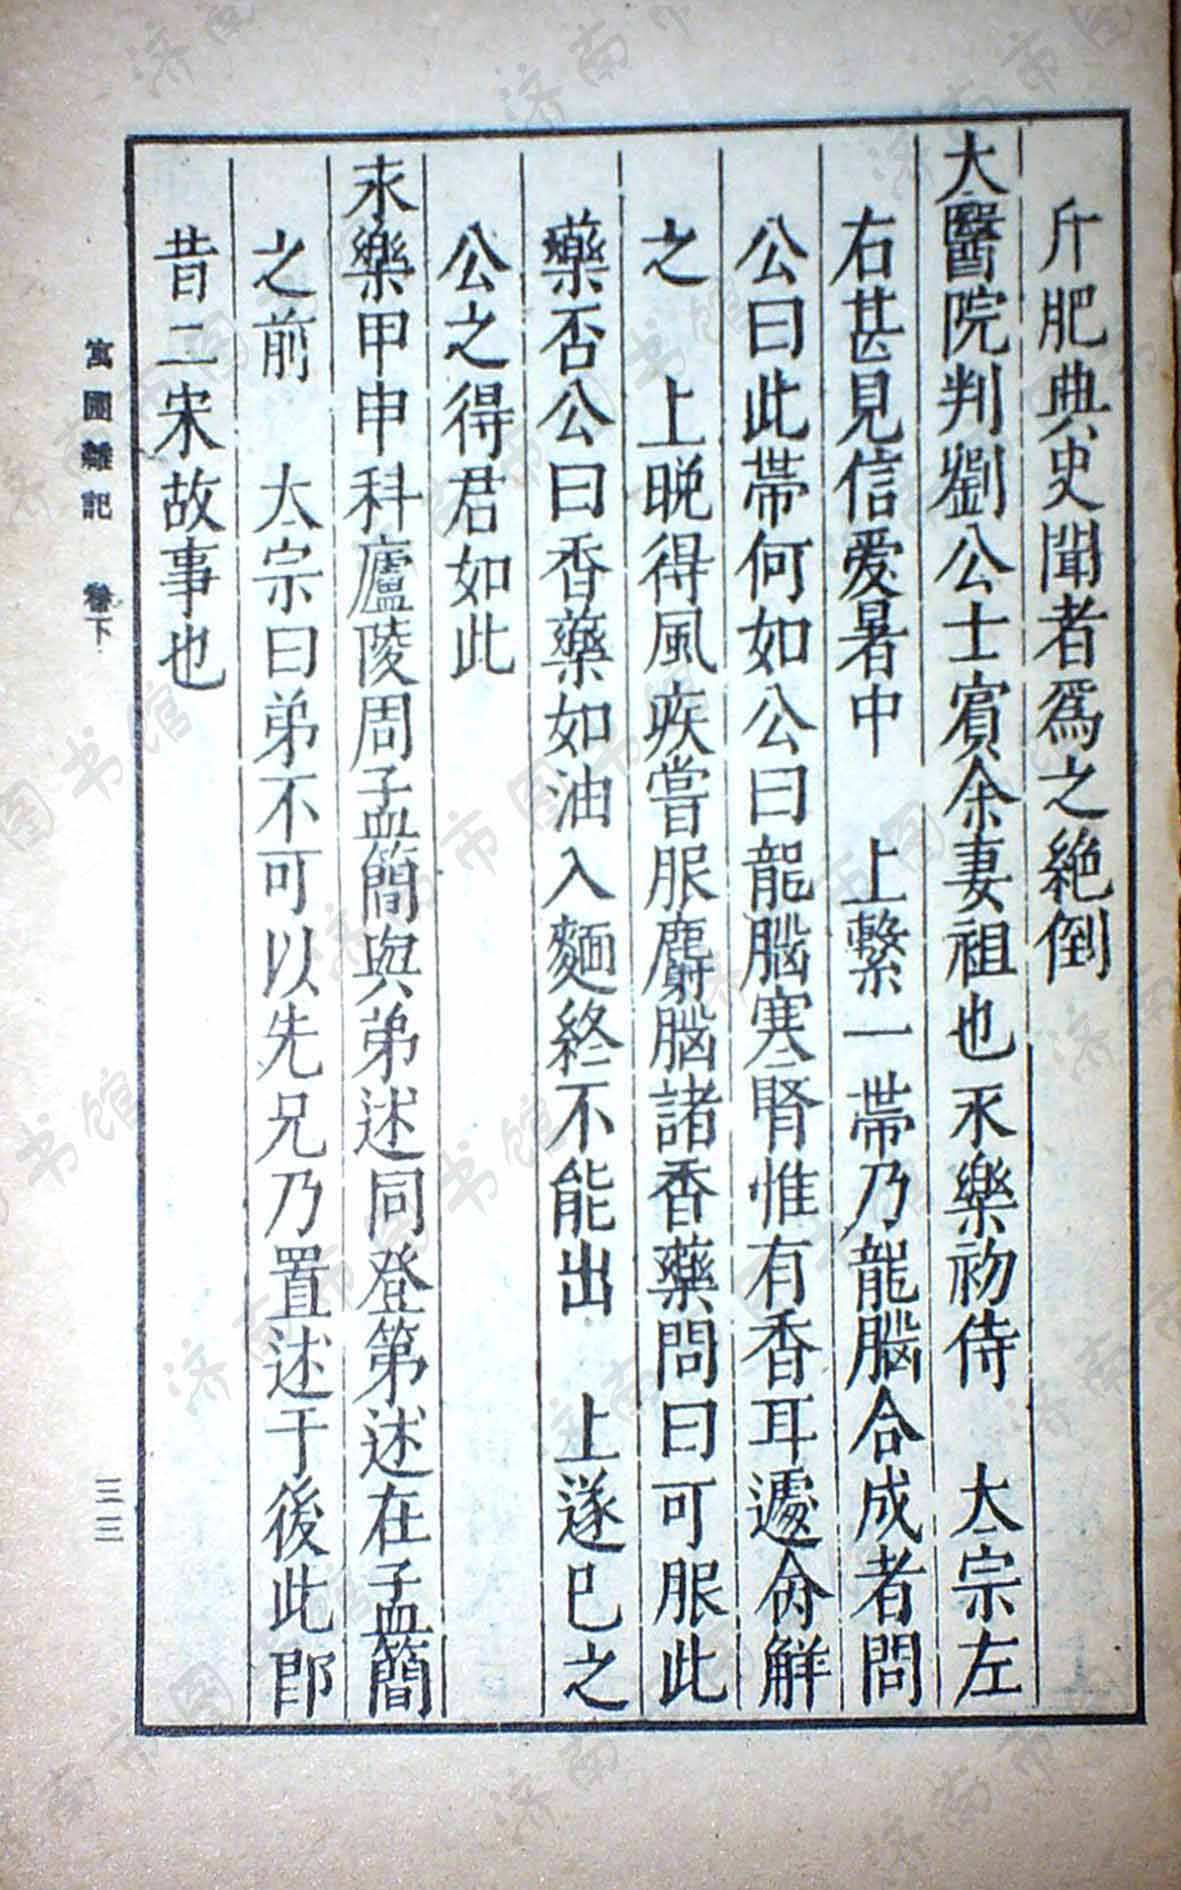 斤肥典史聞者爲之絶倒
太醫院判劉公士賓余妻祖也永樂初侍　太宗左
右甚見信愛暑中　上繫一帶乃龍腦合成者問
公曰此帶何如公曰龍腦寒腎惟有香耳遽命解
之　上晚得風疾嘗服麝腦諸香藥問曰可服此
藥否公曰香藥如油入麵終不能出　上遂已之
公之得君如此
永樂甲申科廬陵周孟簡與弟述同登第述在孟簡
之前　太宗曰弟不可以先兄乃置述于後此卽
昔二宋故事也
寓圃雜記　卷下　三三
济南市图书馆